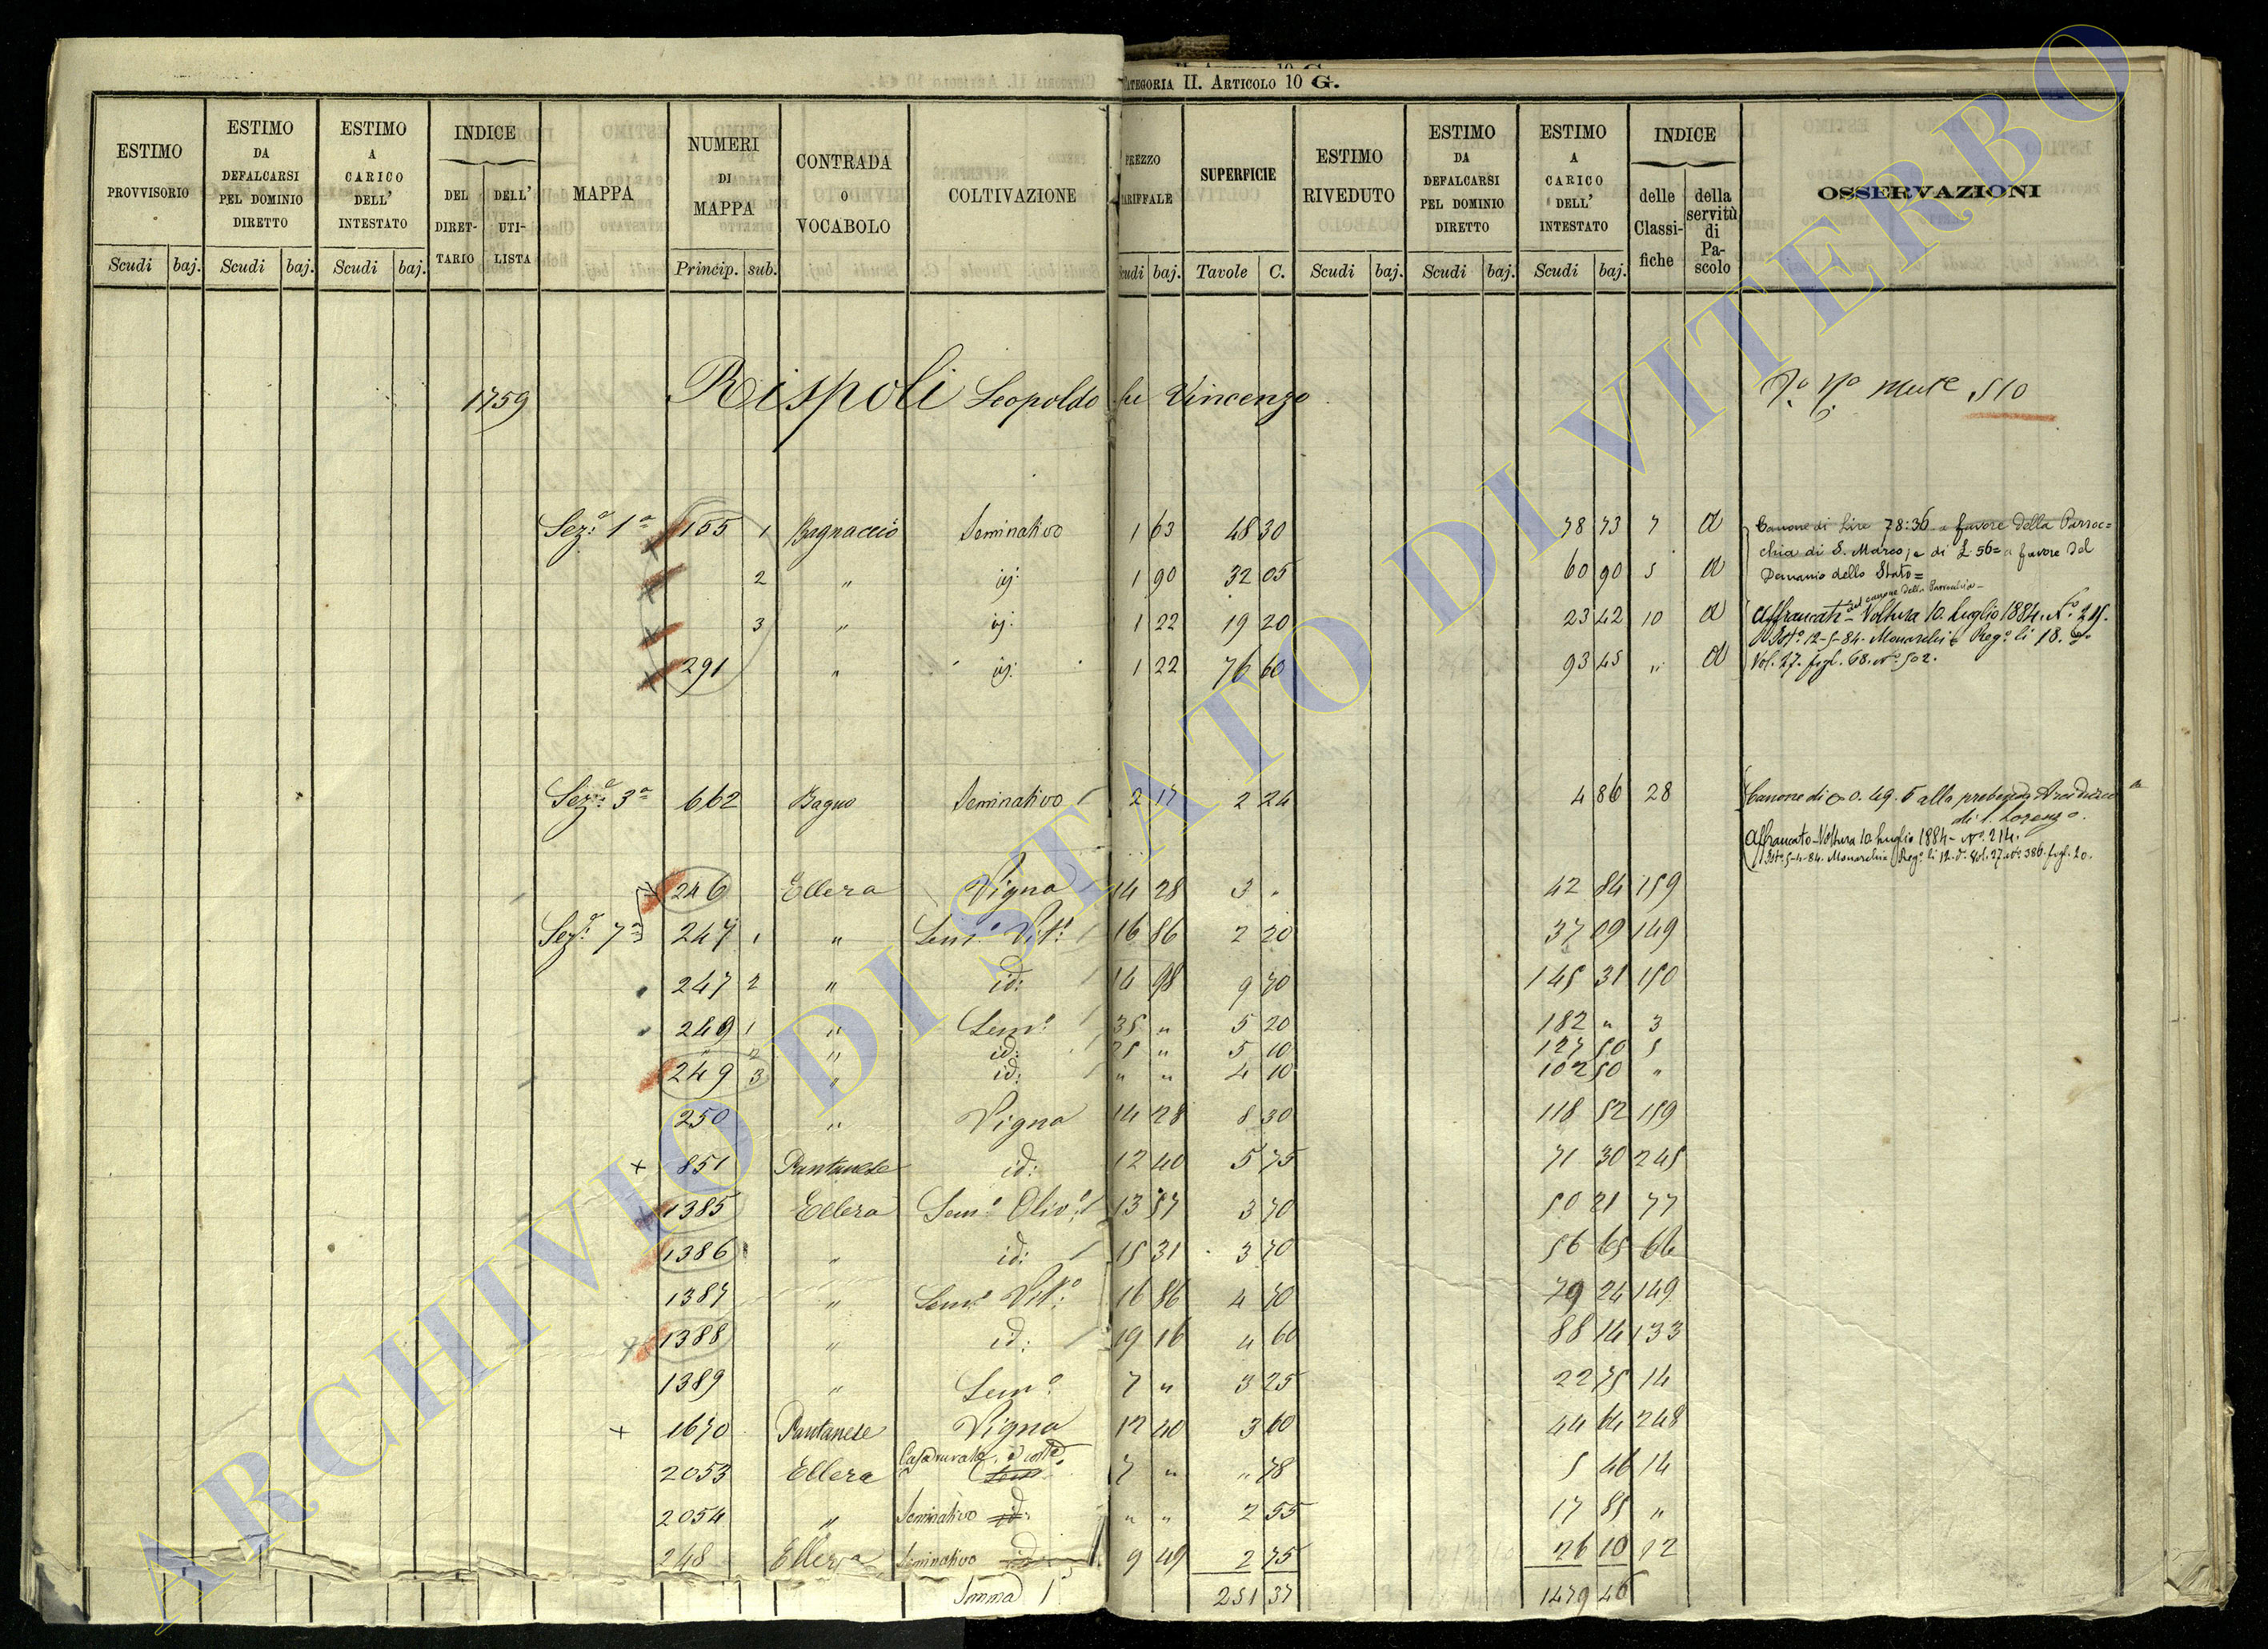 CATEGORIA II. ARTICOLO 10 G.
ESTIMO PROVVISORIO Scudi baj. ESTIMO DA DEFALCARSI PEL DOMINIO DIRETTO Scudi baj. ESTIMO A CARICO DELL' INTESTATO Scudi baj. INDICE DEL DIRETTARIO DELL' UTILISTA MAPPA NUMERI DI MAPPA Princip. sub. CONTRADA O VOCABOLO COLTIVAZIONE PREZZO TARIFFALE Scudi baj. SUPERFICIE Tavole C. ESTIMO RIVEDUTO Scudi baj. ESTIMO DA DEFALCARSI PEL DOMINIO DIRETTO Scudi baj. ESTIMO A CARICO DELL' INTESTATO Scudi baj. INDICE delle Classifiche della servitù di Pascolo OSSERVAZIONI
1759 Rispoli Leopoldo fu Vincenzo 510
Sez.e 1a 155 1 Bagnaccio Seminativo 1 63 48 30 78 73 7 a
2 " id: 1 90 32 05 60 90 5 a
3 " id: 1 22 19 20 23 42 10 a
291 " id: 1 22 76 60 93 45 " a
Canone di Lire 78:36 a favore della Parroc=
chia di S. Marco, e di L. 56= a favore del
Demanio dello Stato=
del canone della Parrocchia-
Affrancato Voltura 10 Luglio 1884. No. 215.
12-5-84. Monarchi Rego. li 18.
Vol. 27. fogl. 68. No. 502.
Sez.e 3a 662 Bagno Seminativo 2 17 2 24 4 86 28
Canone di 0.49.5 alla prebenda
di S. Lorenzo.
Affrancato-Voltura 10 Luglio 1884- No. 214.
5-4-84. Monarchi Rego. li 12. Vol. 27. No. 386. fogl. 20.
246 Ellera Vigna 14 28 3 " 42 84 159
Sez.e 7a 247 1 " Sem.o Vit.o 16 86 2 20 37 09 149
247 2 " id: 14 98 9 70 145 31 150
249 1 " Sem.o 35 " 5 20 182 " 3
" 2 " id: 25 " 5 10 127 50 5
249 3 " id: " " 4 10 102 50 "
250 " Vigna 14 28 8 30 118 52 159
851 Pantanese id: 12 40 5 75 71 30 245
1385 Ellera Sem.o Oliv.o 13 57 3 70 50 21 77
1386 " id: 15 31 3 70 56 65 66
1387 " Sem.o Vit.o 16 86 4 70 79 24 149
1388 " id: 19 16 4 60 88 14 133
1389 " Sem.o 7 " 3 25 22 75 14
1670 Pantanese Vigna 12 40 3 60 44 64 248
2053 Ellera Casa 7 " " 78 5 46 14
2054 " Seminativo id: " " 2 55 17 85 "
248 Ellera Seminativo id: 9 49 2 75 26 10 12
Somma 251 37 1479 46
ARCHIVIO DI STATO DI VITERBO